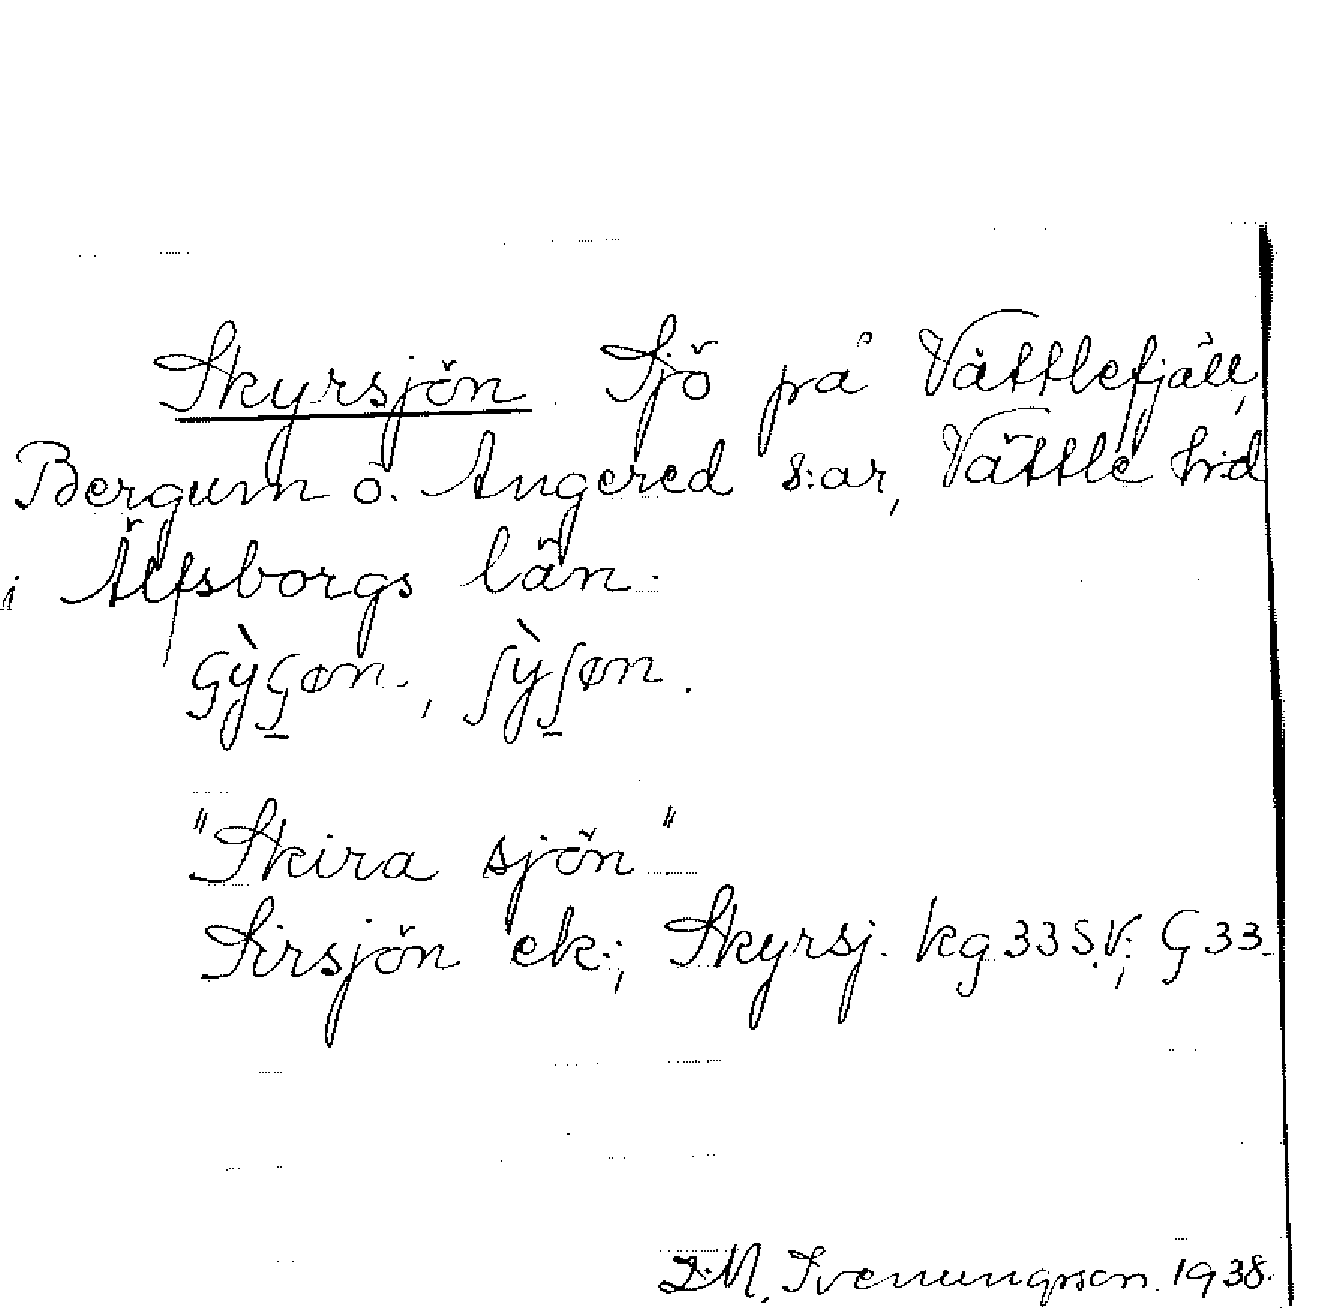 Skyrsjön. Sjö på Vättlefjäll,
Bergum o. Angered s:ar, Vättle hd
i Älfsborgs län.
ʂỳʂøn, ʃỳʃøn.
"Skira sjön"
Sirsjön ek.; Skyrsj. kg 33 S.V; G 33.
Svenungsson. 1938.